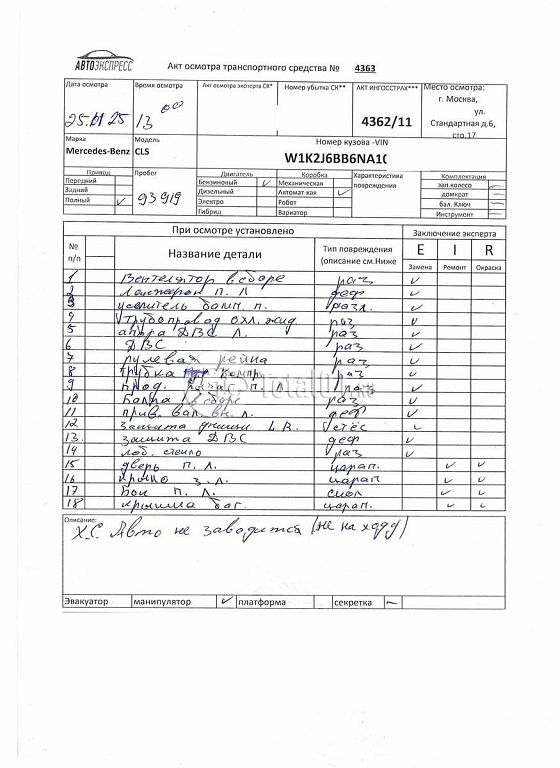 АВТОЭКСПРЕСС
Акт осмотра транспортного средства № 4363
Дата осмотра Время осмотра Акт осмотра эксперта СК* Номер убытка СК** АКТ ИНГОССТРАХ*** Место осмотра:
г. Москва,
25.01 25 13 00 4362/11 ул.
Стандартная д.6,
стр.17
Марка Модель Номер кузова -VIN
Mercedes-Benz CLS W1K2J6BB6NA1(
Привод Пробег Двигатель Коробка Характеристика повреждения Комплектация
Передний 93919 Бензиновый ✓ Механическая зап.колесо —
Задний Дизельный Автомат-кая ✓ домкрат —
Полный ✓ Электро Робот бал. Ключ —
Гибрид Вариатор Инструмент —
При осмотре установлено Заключение эксперта
№ п/п Название детали Тип повреждения (описание см.Ниже E I R
Замена Ремонт Окраска
1 Вентелятор в сборе раз ✓
2 Лонжерон п. Л деф ✓
3 усилитель бамп. п. разл. ✓
4 Трубопровод охл. жид. раз ✓
5 апора ДВС Л. раз ✓
6 ДВС раз ✓
7 рулевая рейка раз ✓
8 трубка компр. раз ✓
9 рычаг п. Л раз ✓
10 в сборе раз ✓
11 прив. вал. вн. л. деф ✓
12 защита днища L.R. стёс ✓
13. защита ДВС деф ✓
14 лоб, стекло раз ✓
15 дверь п. Л. царап. ✓ ✓
16 крыло з. Л. царап. ✓ ✓
17 Бок п. Л. скол ✓ ✓
18 крышка баг. царап. ✓ ✓
Описание:
Х.С. Авто не заводится (не на ходу)
Эвакуатор манипулятор ✓ платформа секретка —